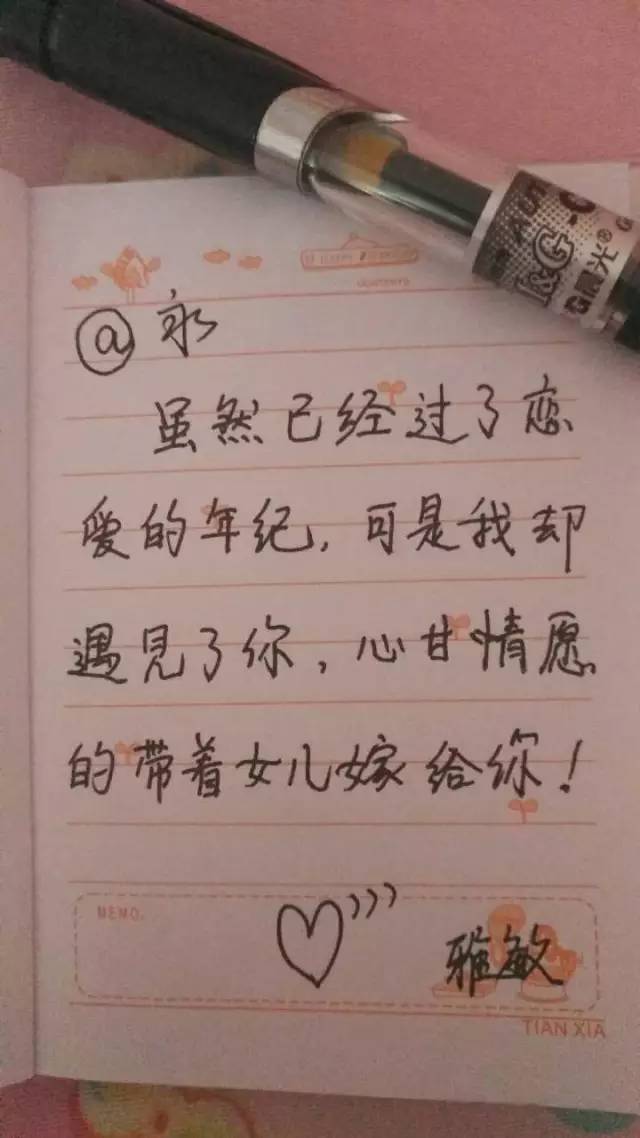 @永
虽然已经过了恋
爱的年纪,可是我却
遇见了你,心甘情愿
的带着女儿嫁给你!
MEMO.
雅敏
TIAN XIA
M&G
晨光®